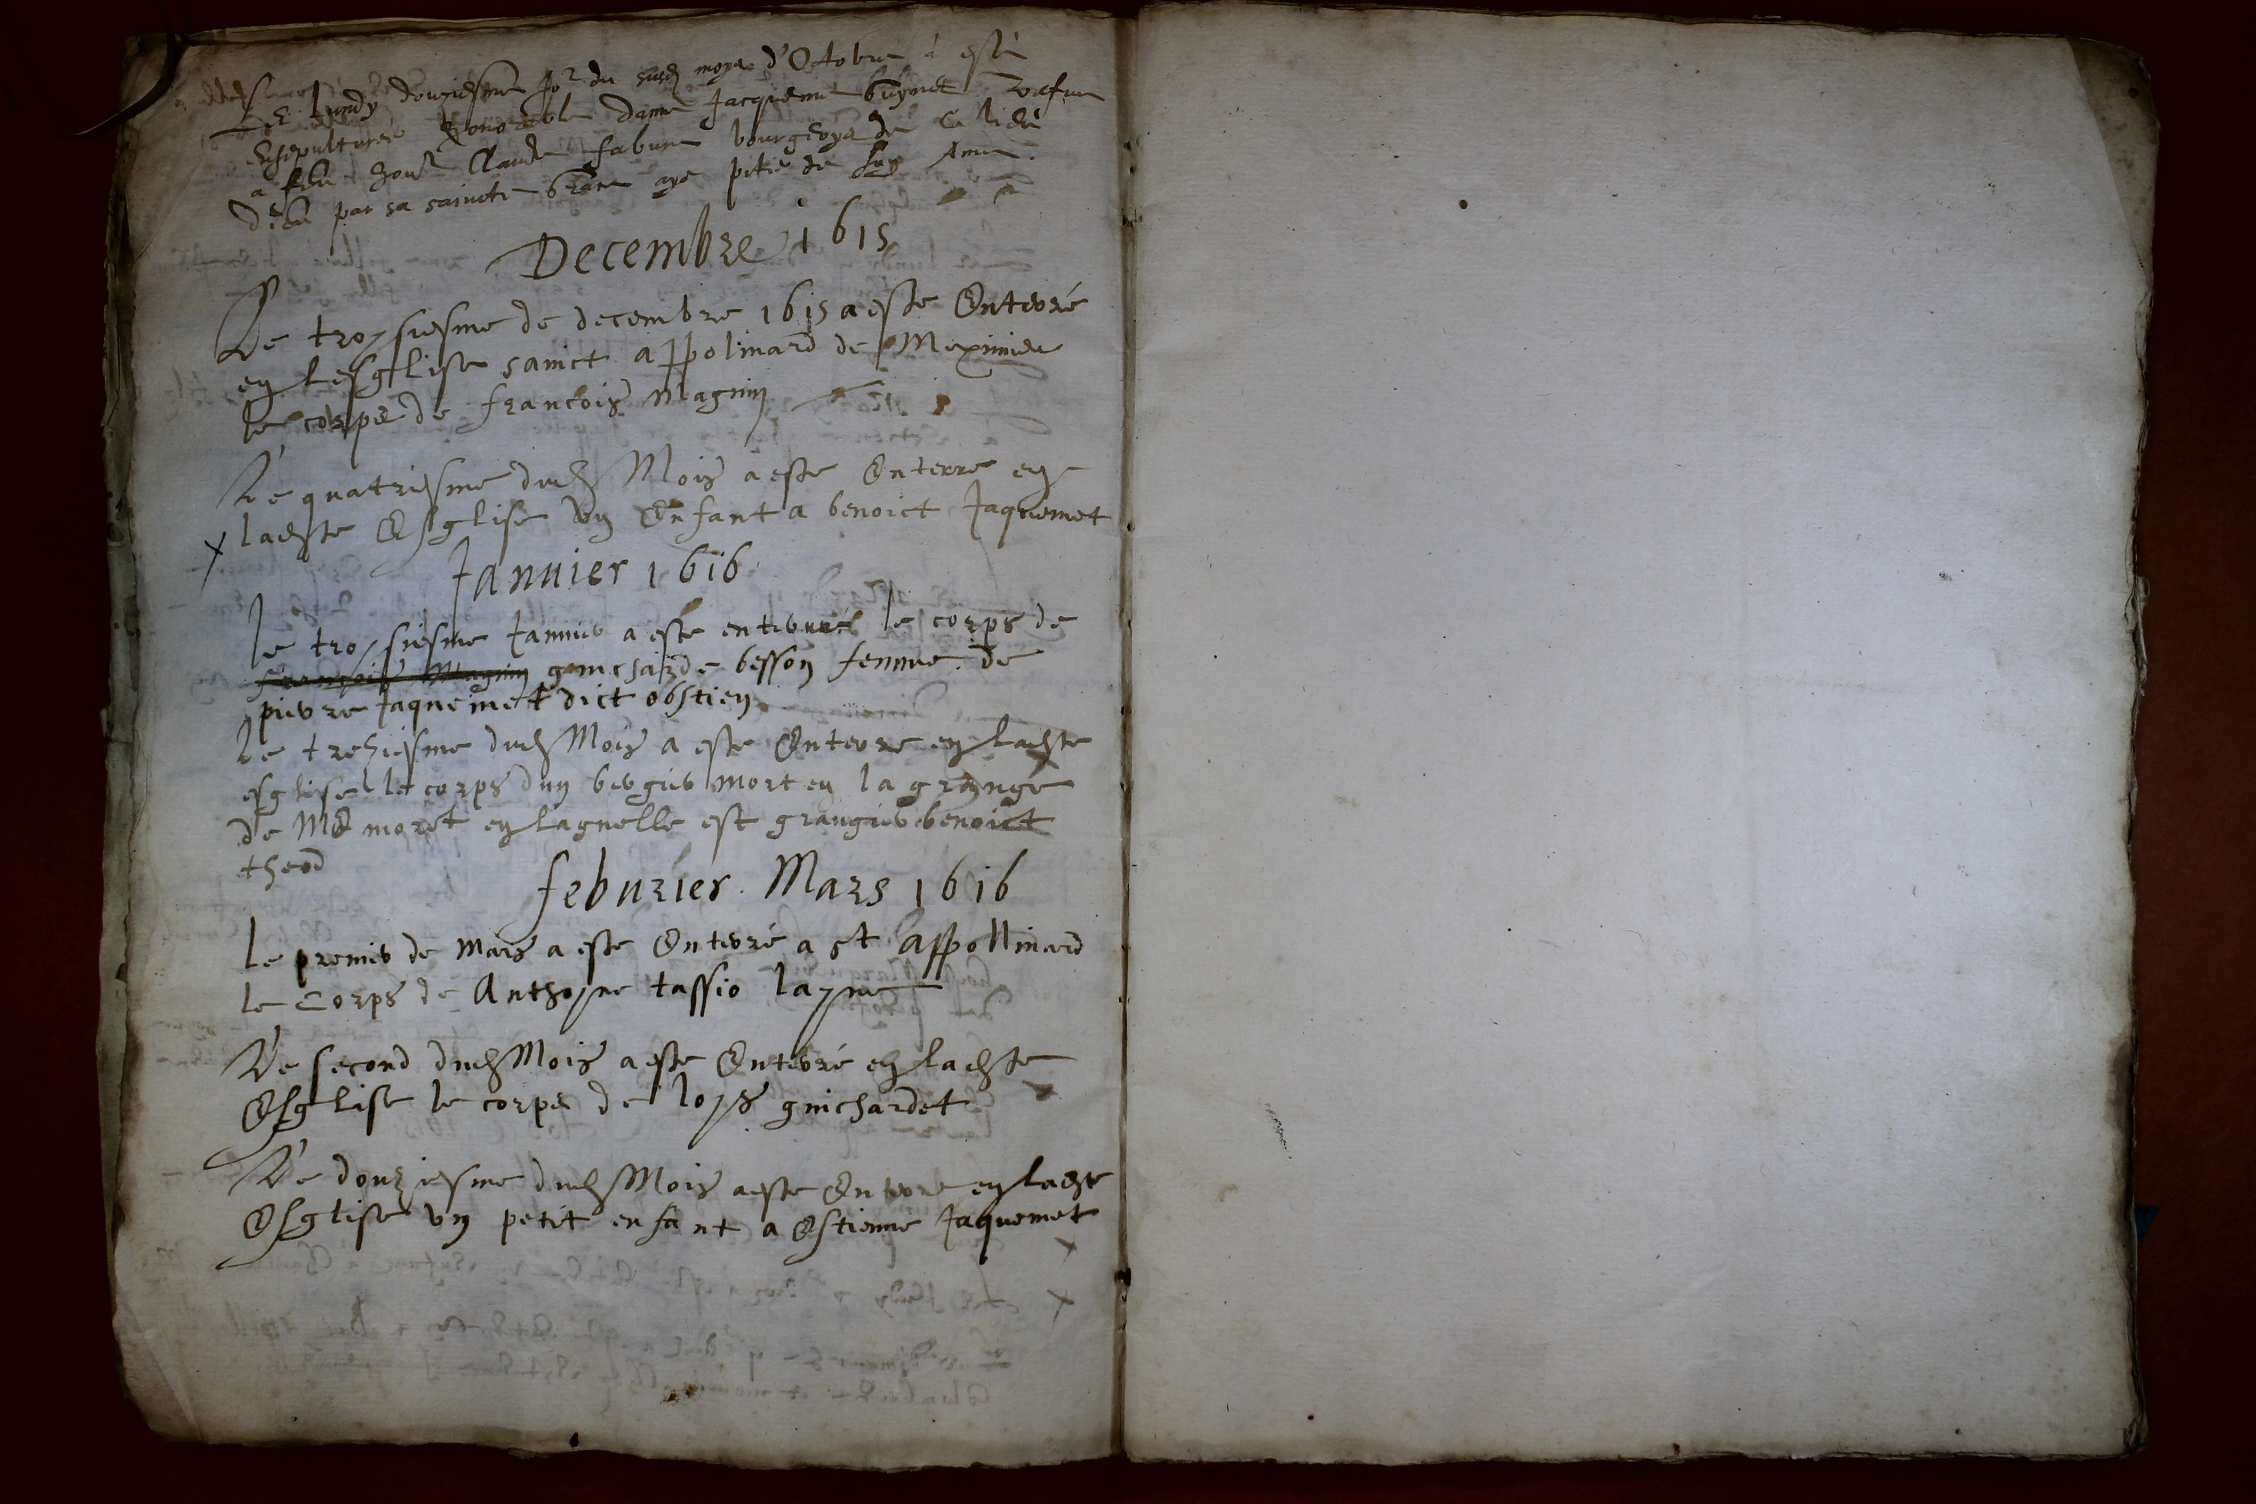 Le lundy douziesme jor du susd moys d'Octobre à esté
Ensepulturée honorable dame Jacquemme Guyonet vefue
a feu honr Claude fabure bourgeoys de ce lieu
dieu par sa saincte Grace aye pitié de son Ame
Decembre 1615
Le troysiesme de decembre 1615 a este Enterré
en Lesglise sainct appolinard de Meximieu
le corps de francois Magnin
Le quatriesme dud Mois a este Enterre en
ladste Esglise vn Enfant a benoict Jaquemet
Januier 1616
le troysiesme Januier a este enterree le corps de
francois Magnin guincharde besson femme de
pierre Jaquemet dict obstien
Le trehiesme dud Mois a este Enterre en ladste
esglise le corps dun bergier mort en la grange
de Me moret en laquelle est grangier benoict
theod
feburier Mars 1616
Le premier de Mars a este Enterré a St Appollinard
le Corps de Anthoyne tassio layne
Le second dud Mois a este Enterré en ladste
Esglise le corps de loys guichardet
Le douziesme dud Mois a este Enterre en ladste
Esglise vn petit enfant a Estienne Jaquemet